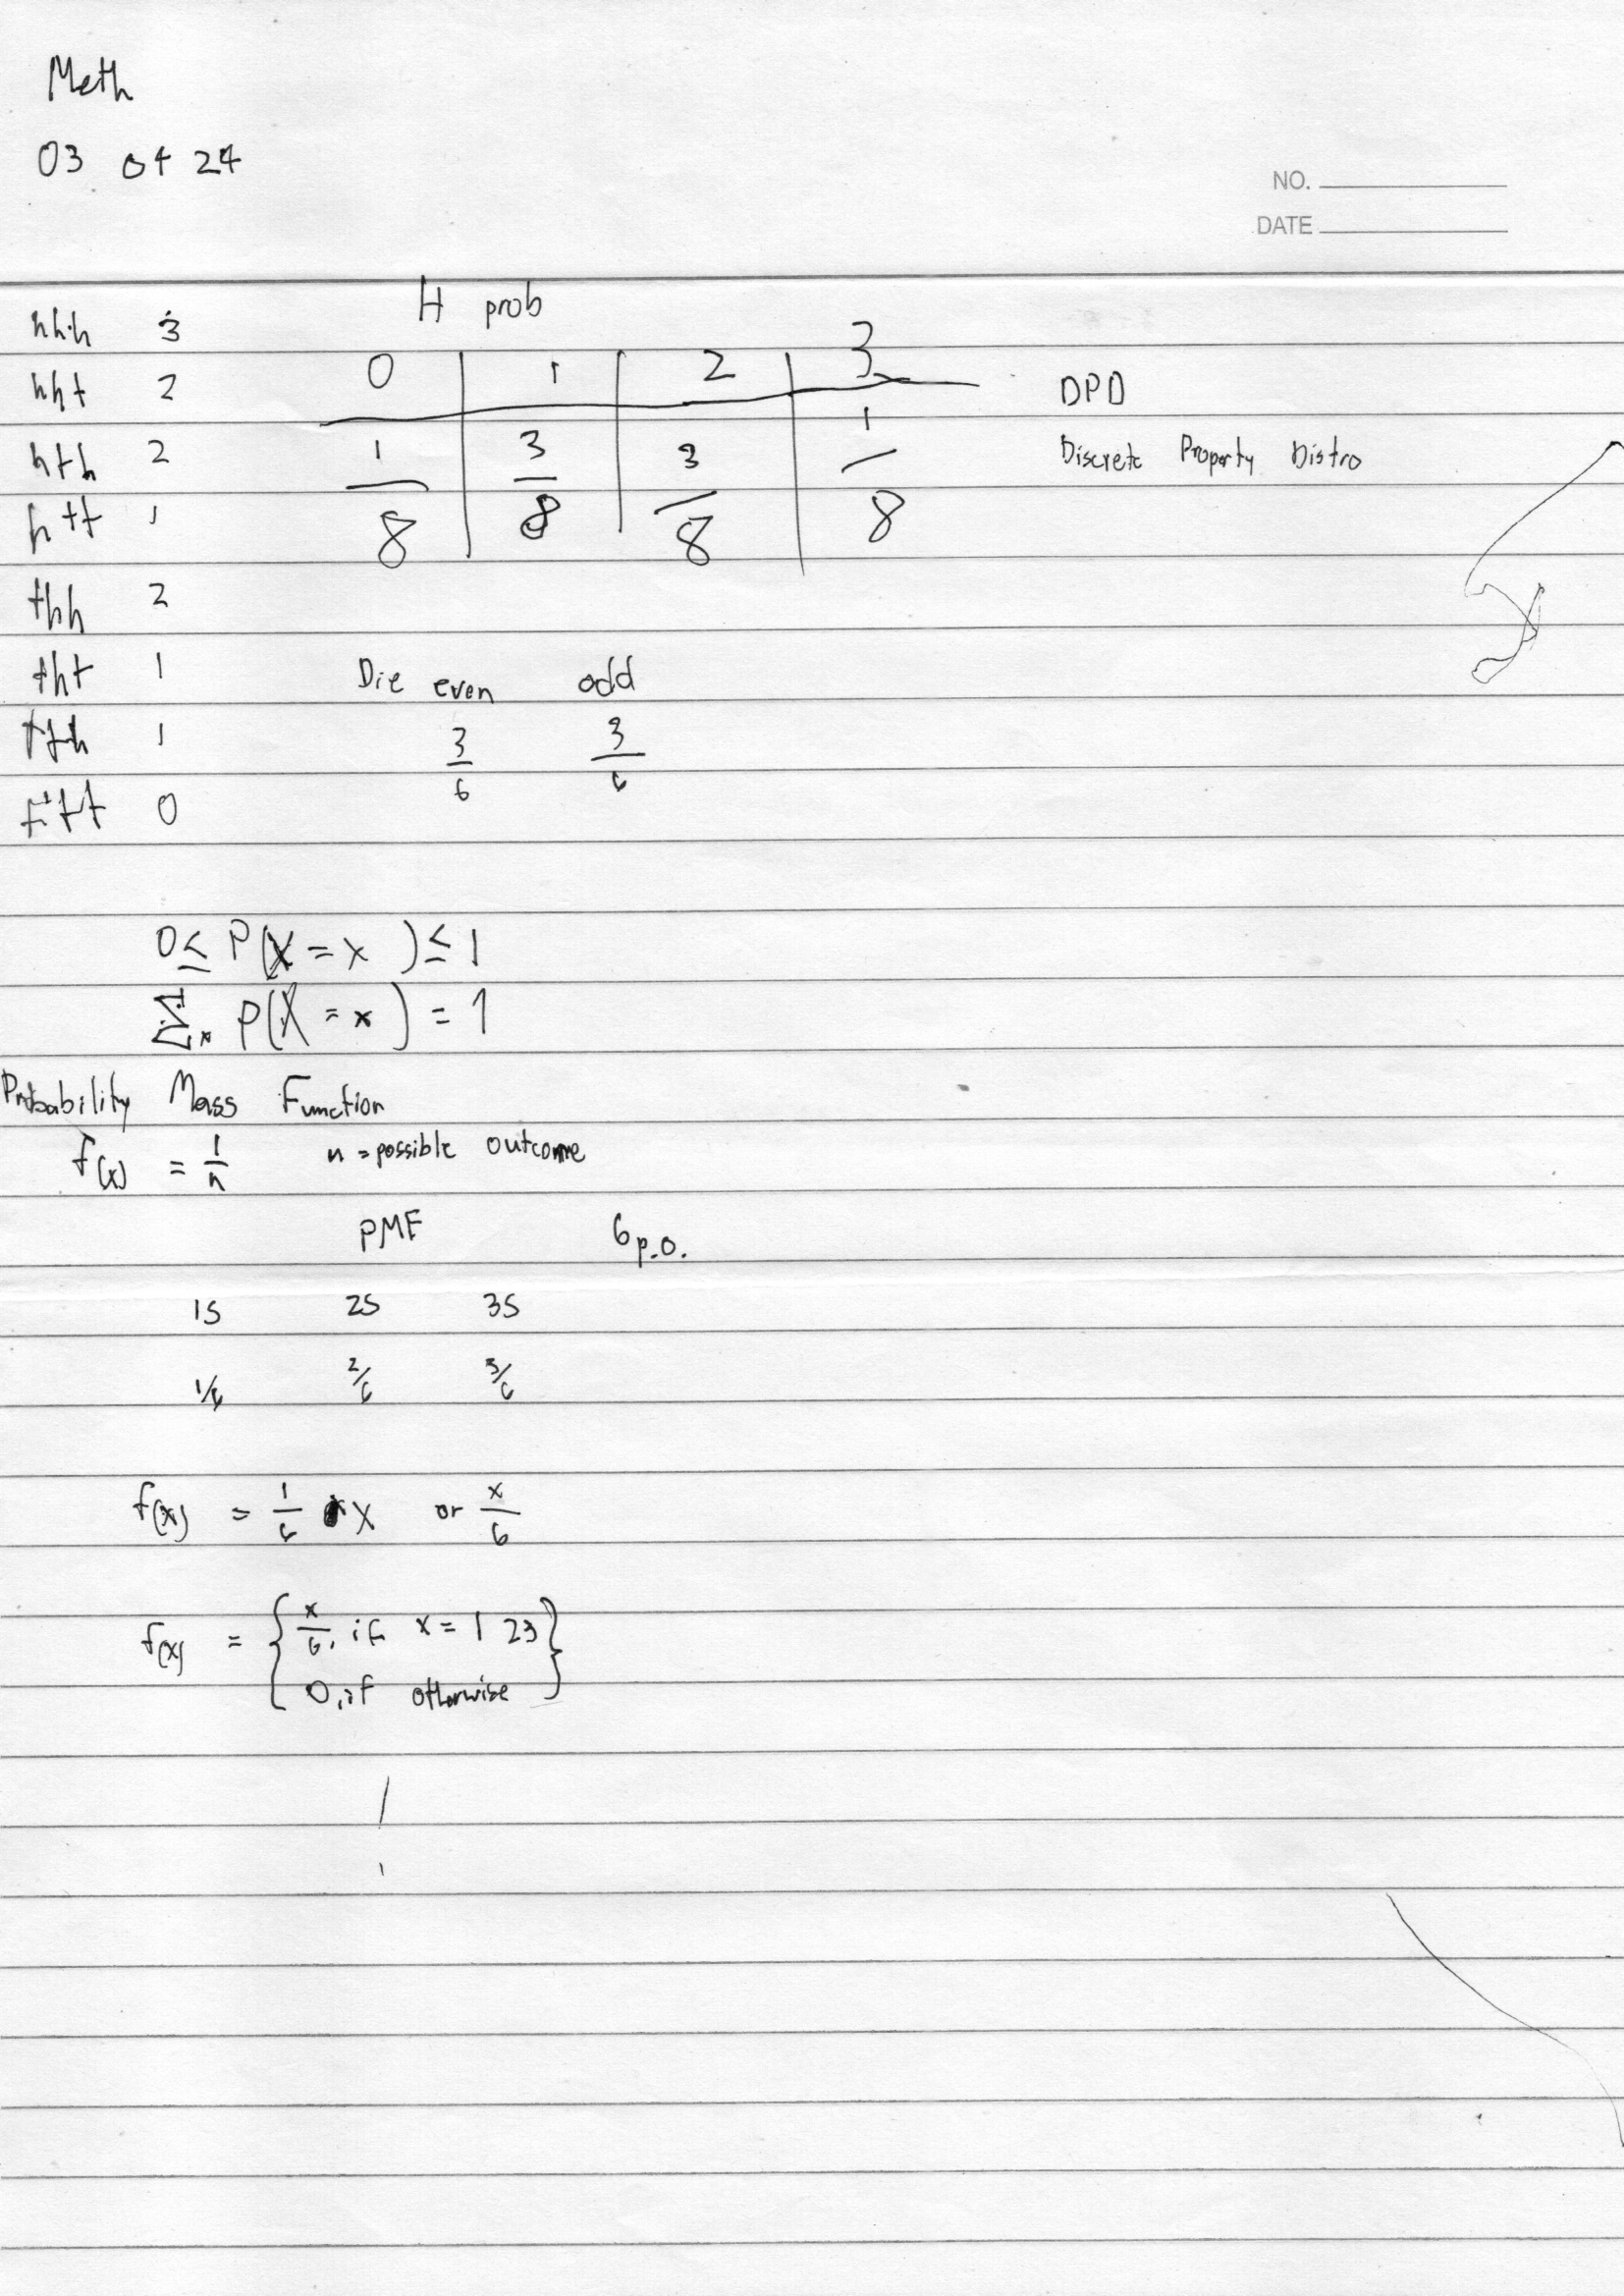 Meth
03 04 24
NO.
DATE
hhh 3
hht 2
hth 2
htt 1
thh 2
tht 1
tth 1
ttt 0
H prob
0 1 2 3
1/8 3/8 3/8 1/8
DPD
Discrete Property Distro
Die even odd
3/6 3/6
0 ≤ P(X = x) ≤ 1
∑x P(X = x) = 1
Probability Mass Function
f(x) = 1/n n = possible outcome
PMF 6 p.o.
1s 2s 3s
1/6 2/6 3/6
f(x) = 1/6 x or x/6
f(x) = { x/6, if x = 1 2 3 }
{ 0, if otherwise }